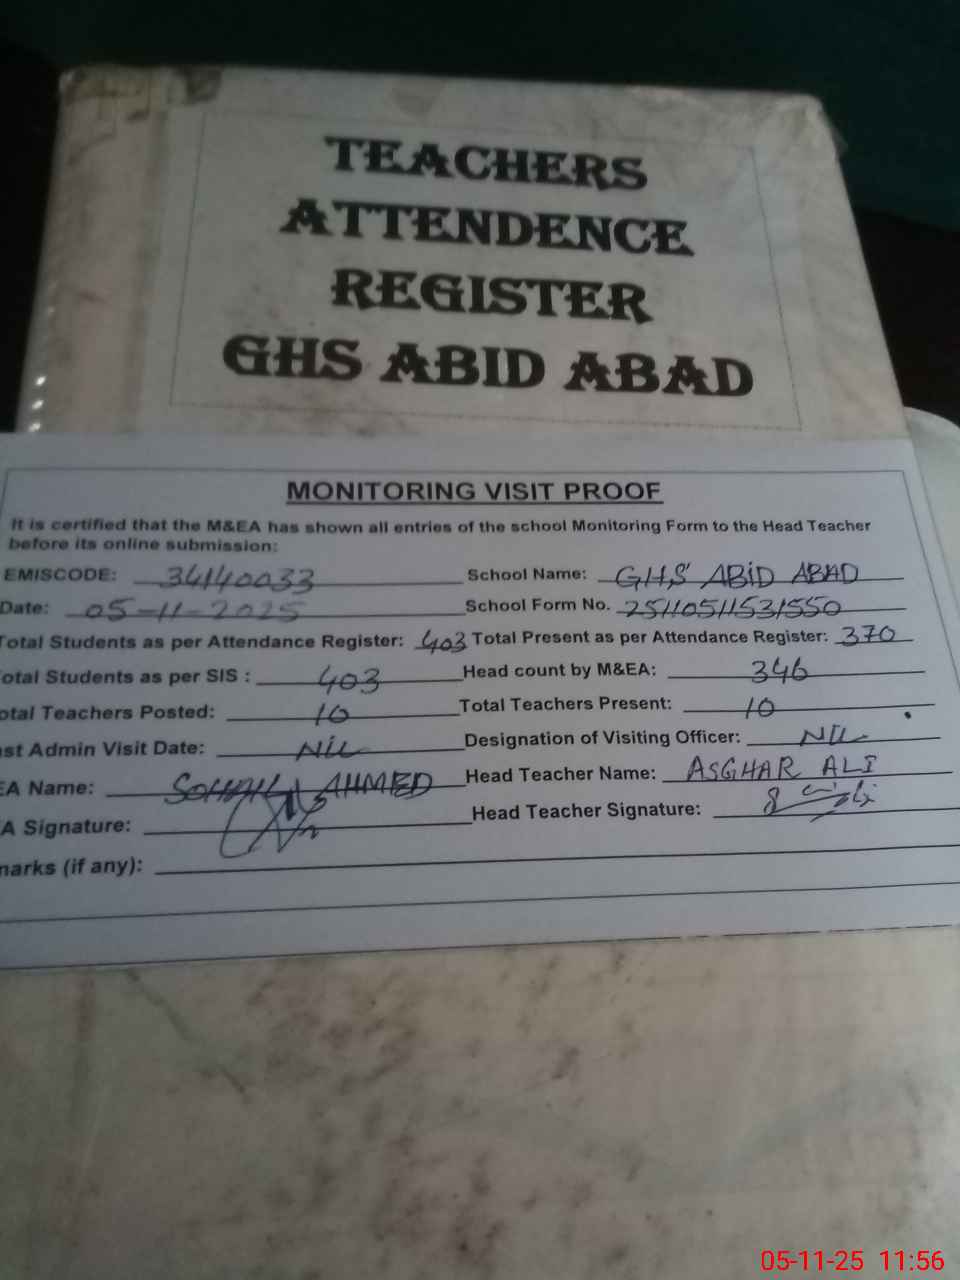 TEACHERS
ATTENDENCE
REGISTER
GHS ABID ABAD
MONITORING VISIT PROOF
It is certified that the M&EA has shown all entries of the school Monitoring Form to the Head Teacher
before its online submission:
EMISCODE: 34140033 School Name: GHS ABID ABAD
Date: 05-11-2025 School Form No. 2511051531550
Total Students as per Attendance Register: 403 Total Present as per Attendance Register: 370
otal Students as per SIS : 403 Head count by M&EA: 346
otal Teachers Posted: 10 Total Teachers Present: 10
st Admin Visit Date: NIL Designation of Visiting Officer: NIL
EA Name: SOHAIL AHMED Head Teacher Name: ASGHAR ALI
A Signature: Head Teacher Signature:
narks (if any):
05-11-25 11:56